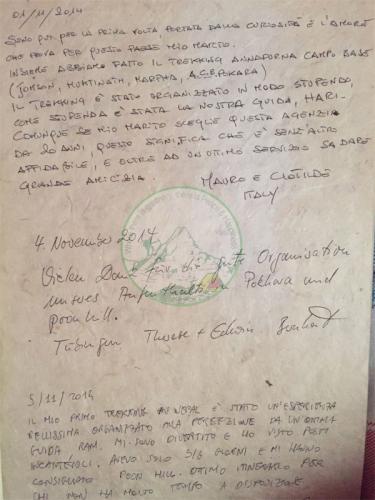 01/11/2014
SONO QUI PER LA PRIMA VOLTA PORTATA DALLA CURIOSITÀ E L'AMORE
CHE PROVA PER QUESTO PAESE MIO MARITO.
INSIEME ABBIAMO FATTO IL TREKKING ANNAPURNA CAMPO BASE
(JOMSON, MUKTINATH, MARPHA, POKARA)
IL TREKKING È STATO ORGANIZZATO IN MODO STUPENDO,
COME STUPENDA È STATA LA NOSTRA GUIDA, HARI.
COMUNQUE SE MIO MARITO SCEGLIE QUESTA AGENZIA
DA 20 ANNI, QUESTO SIGNIFICA CHE È SENZ'ALTRO
AFFIDABILE, E OLTRE AD UN OTTIMO SERVIZIO SA DARE
GRANDE AMICIZIA.
MAURO E CLOTILDE
ITALY
4. November 2014
Vielen Dank für die gute Organisation
unseres Aufenthaltes in Pokhara und
poonhill.
Tübingen Therese + Edwin
5/11/2014
IL MIO PRIMO TREKKING IN NEPAL È STATO UN'ESPERIENZA
BELLISSIMA ORGANIZZATO ALLA PERFEZIONE DA UN'OTTIMA
GUIDA RAM. MI SONO DIVERTITO E HO VISTO POSTI
INCANTEVOLI. AVEVO SOLO 5/6 GIORNI E MI HANNO
CONSIGLIATO POON HILL. OTTIMO ITINERARIO PER
CHI NON HA MOLTO TEMPO A DISPOSIZIONE